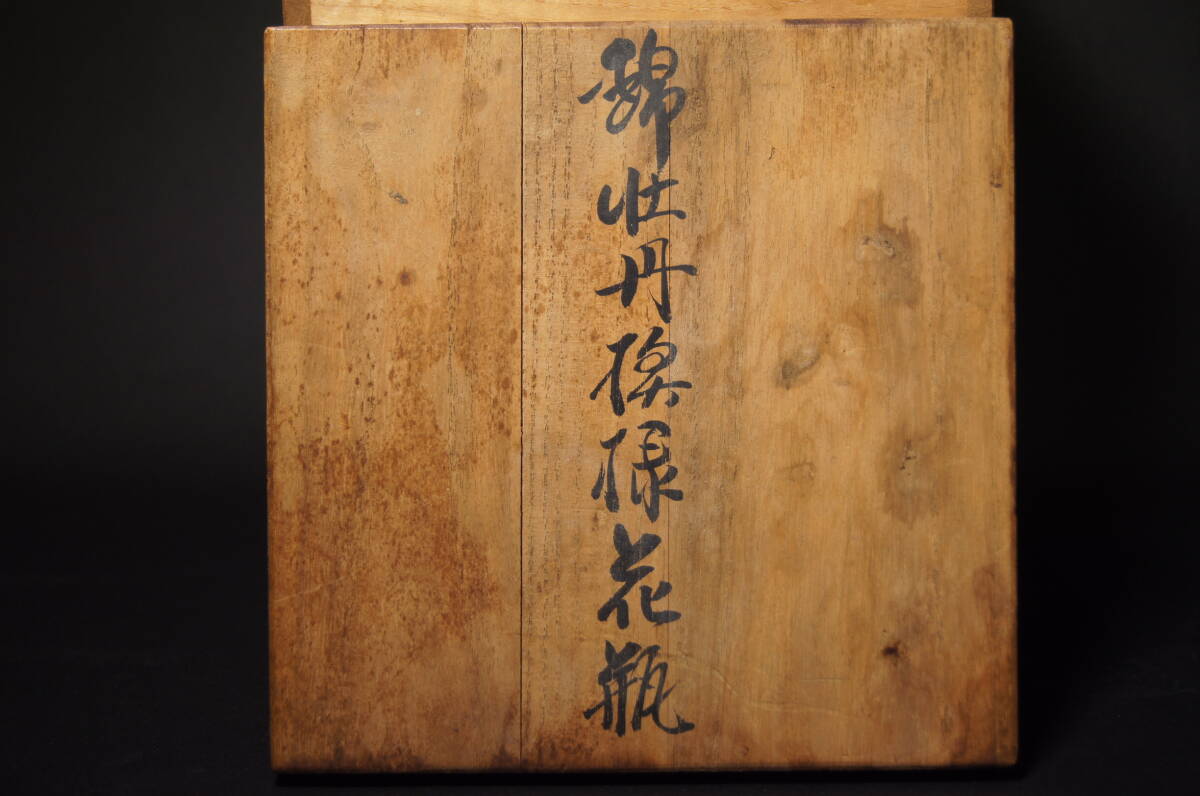 錦牡丹模様花瓶